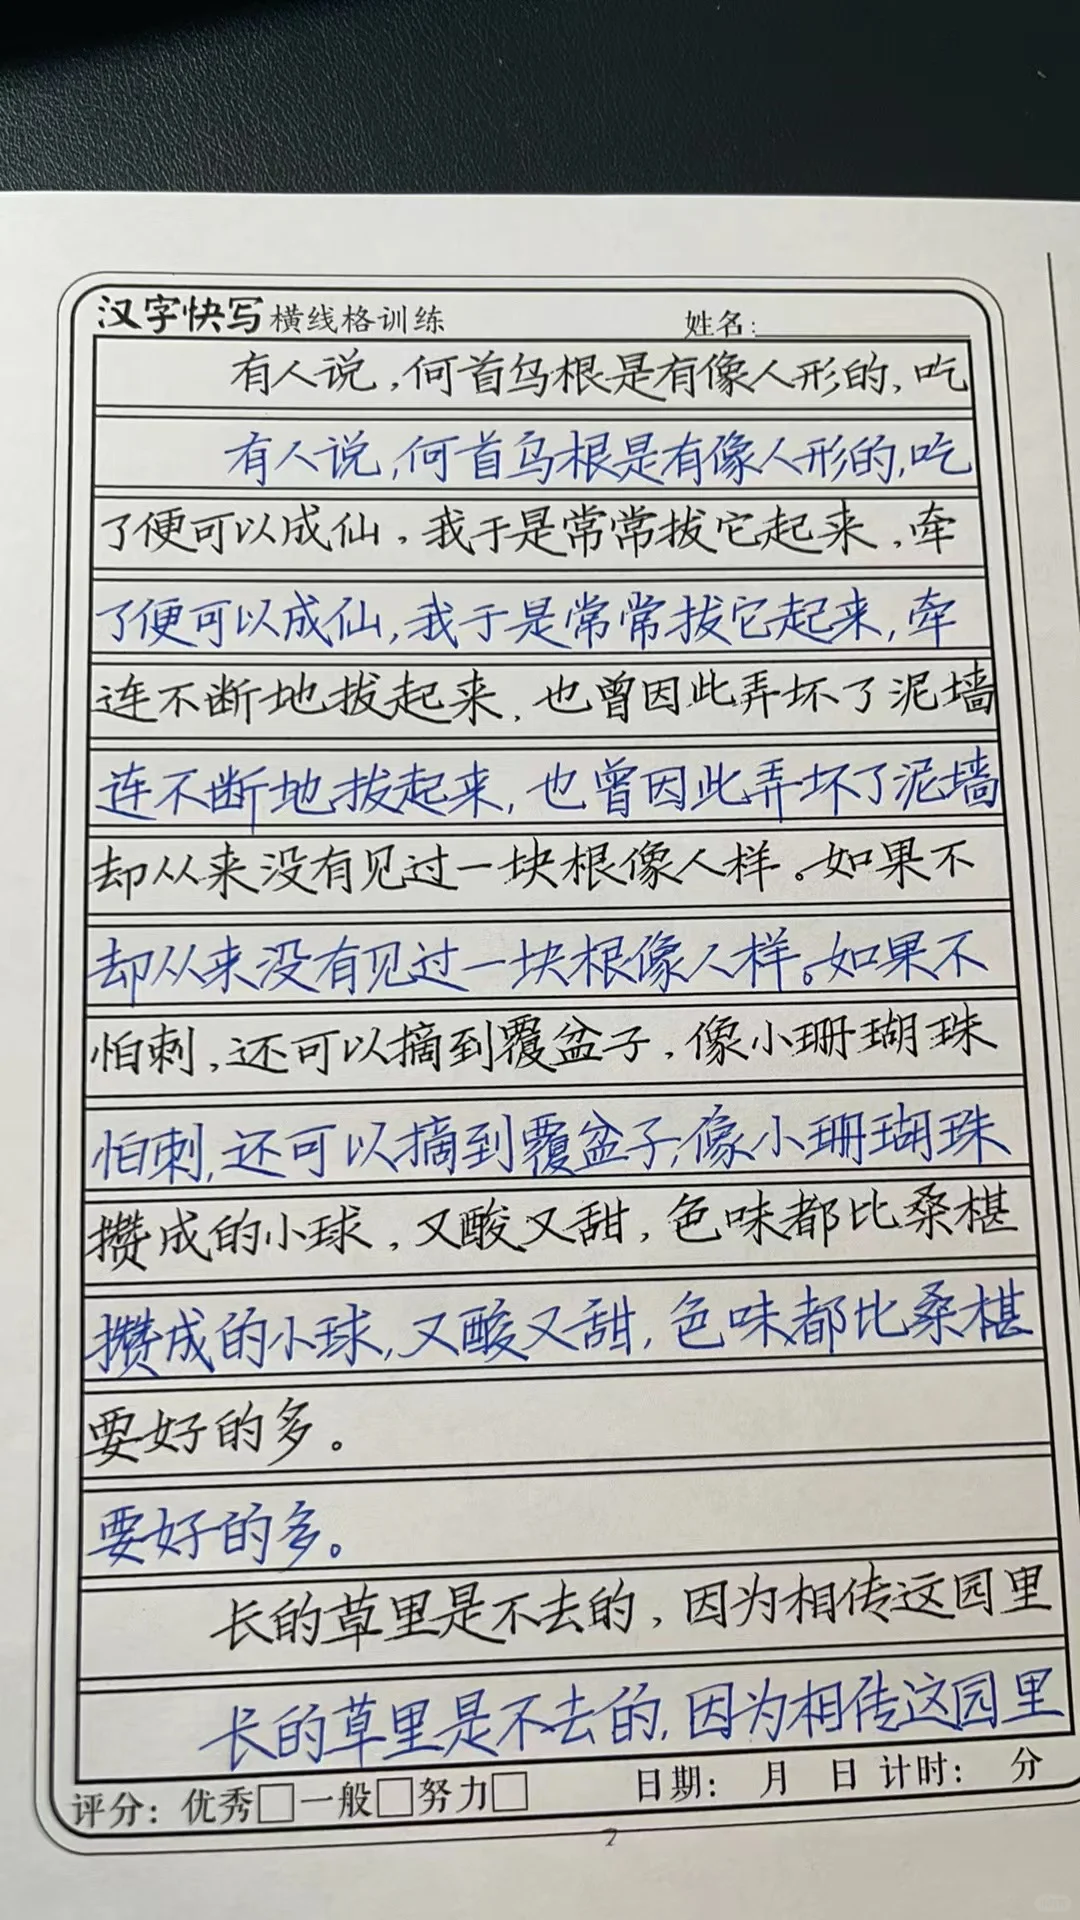 汉字快写横线格训练 姓名:
有人说,何首乌根是有像人形的,吃
有人说,何首乌根是有像人形的,吃
了便可以成仙,我于是常常拔它起来,牵
了便可以成仙,我于是常常拔它起来,牵
连不断地拔起来,也曾因此弄坏了泥墙
连不断地拔起来,也曾因此弄坏了泥墙
却从来没有见过一块根像人样。如果不
却从来没有见过一块根像人样。如果不
怕刺,还可以摘到覆盆子,像小珊瑚珠
怕刺,还可以摘到覆盆子,像小珊瑚珠
攒成的小球,又酸又甜,色味都比桑椹
攒成的小球,又酸又甜,色味都比桑椹
要好的多。
要好的多。
长的草里是不去的,因为相传这园里
长的草里是不去的,因为相传这园里
评分: 优秀□一般□努力□ 日期: 月 日 计时: 分
2